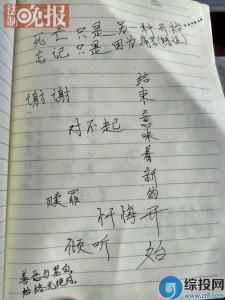 法制晚报
死亡只是另一种开始
忘记只是因为痛苦(错误)
谢谢
对不起
结束意味着新的开始
赎罪
忏悔
倾听
善恶与黑白,
始终无绝对。
综投网
www.zt5.com